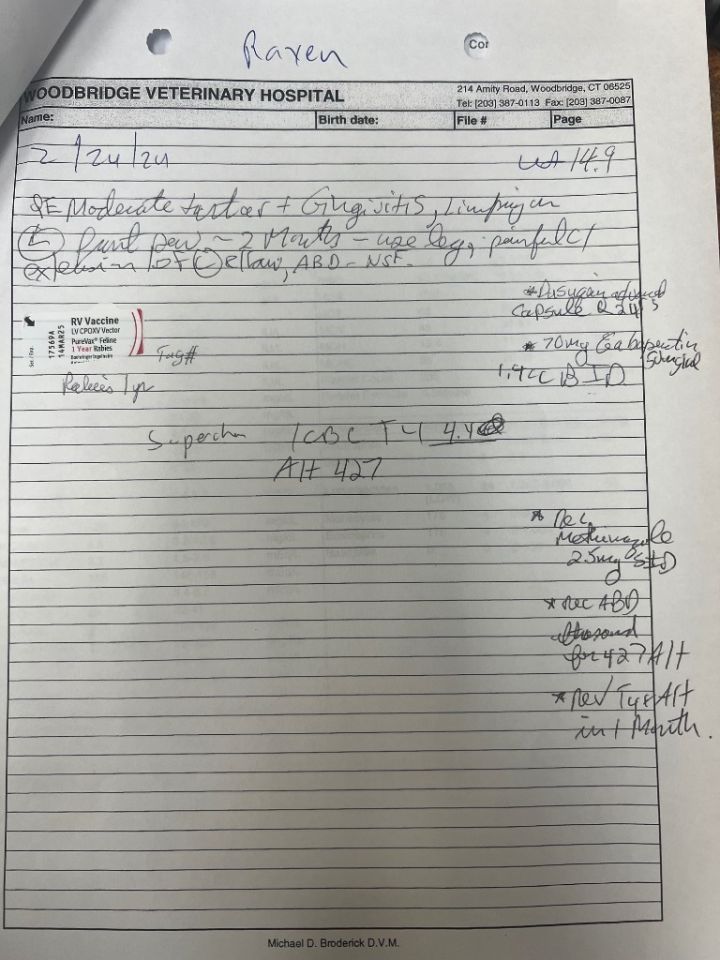 Raxen
Cor
WOODBRIDGE VETERINARY HOSPITAL
214 Amity Road, Woodbridge, CT 06525
Tel: (203) 387-0113 Fax: (203) 387-0087
Name: Birth date: File # Page
2/24/24 Wt 14.9
PE Moderate tartar + Gingivitis, Limping on
(L) front paw ~ 2 Months - use leg, painful c/
extension of (L) elbow, ABD - NSF.
* Dasuquin advanced
Capsule Q 24
RV Vaccine
LV CPOXV Vector
PureVax® Feline
1 Year Rabies
Boehringer Ingelheim
17569A
14MAR25
Tag#
* 70mg Gabapentin
50mg/ml
1.4cc BID
Rabies 1yr
Superchem /CBC T4 4.4
Alt 427
* Rec
Methimazole
2.5mg SID
* rec ABD
ultrasound
for 427 Alt
* rev T4 & Alt
in 1 Month.
Michael D. Broderick D.V.M.